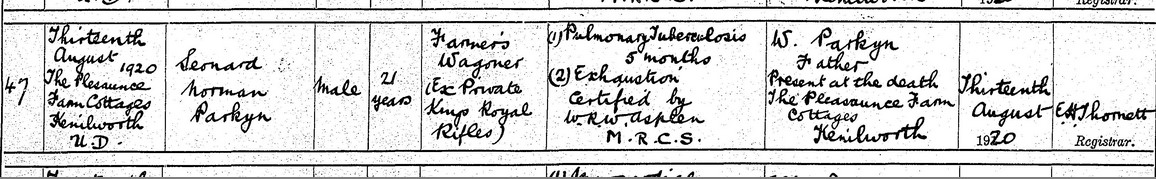 Registrar.
47
Thirteenth
August 1920
The Pleasaunce
Farm Cottages
Kenilworth
U.D.
Leonard
Norman
Parkyn
Male
21
years
Farmer's
Wagoner
(Ex Private
Kings Royal
Rifles)
(1) Pulmonary Tuberculosis
5 months
(2) Exhaustion
Certified by
W.R.W. Asplen
M.R.C.S.
W. Parkyn
Father
Present at the death
The Pleasaunce Farm
Cottages
Kenilworth
Thirteenth
August
1920
E.H. Thornett
Registrar.